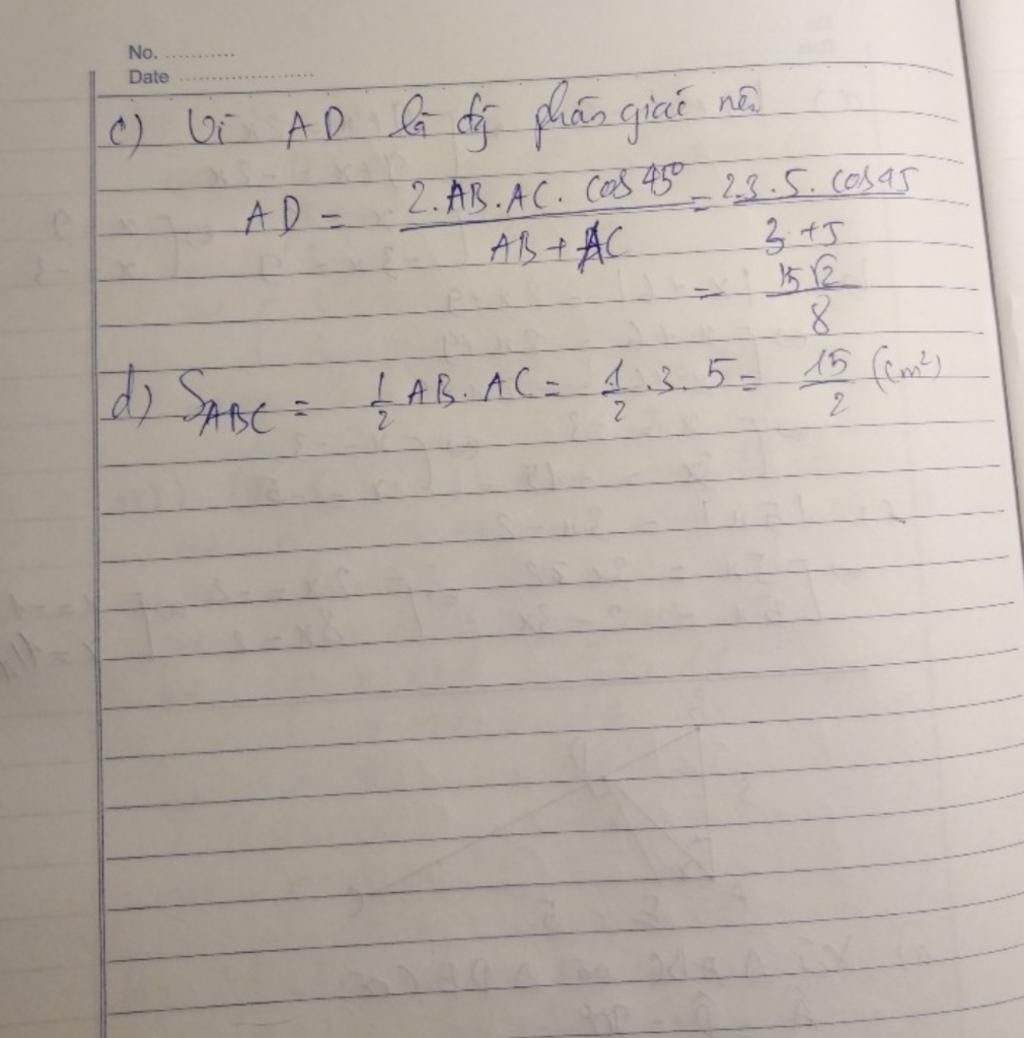 No. ............
Date .......................
c) Vì AD là đg phân giác nên
AD = 2.AB.AC. cos 45° / AB + AC = 2.3.5. cos 45 / 3 + 5
= 15√2 / 8
d) S_ABC = 1/2 AB. AC = 1/2 .3. 5 = 15/2 (cm²)